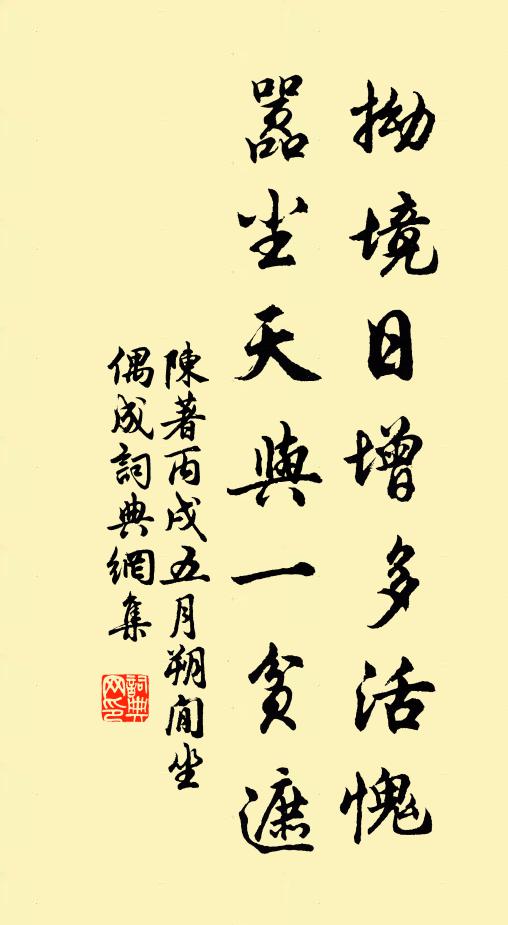 拗境日增多活愧
嚣尘天與一貧遮
陳著丙戌五月朔閒坐
偶成詞典網集
詞典
网印